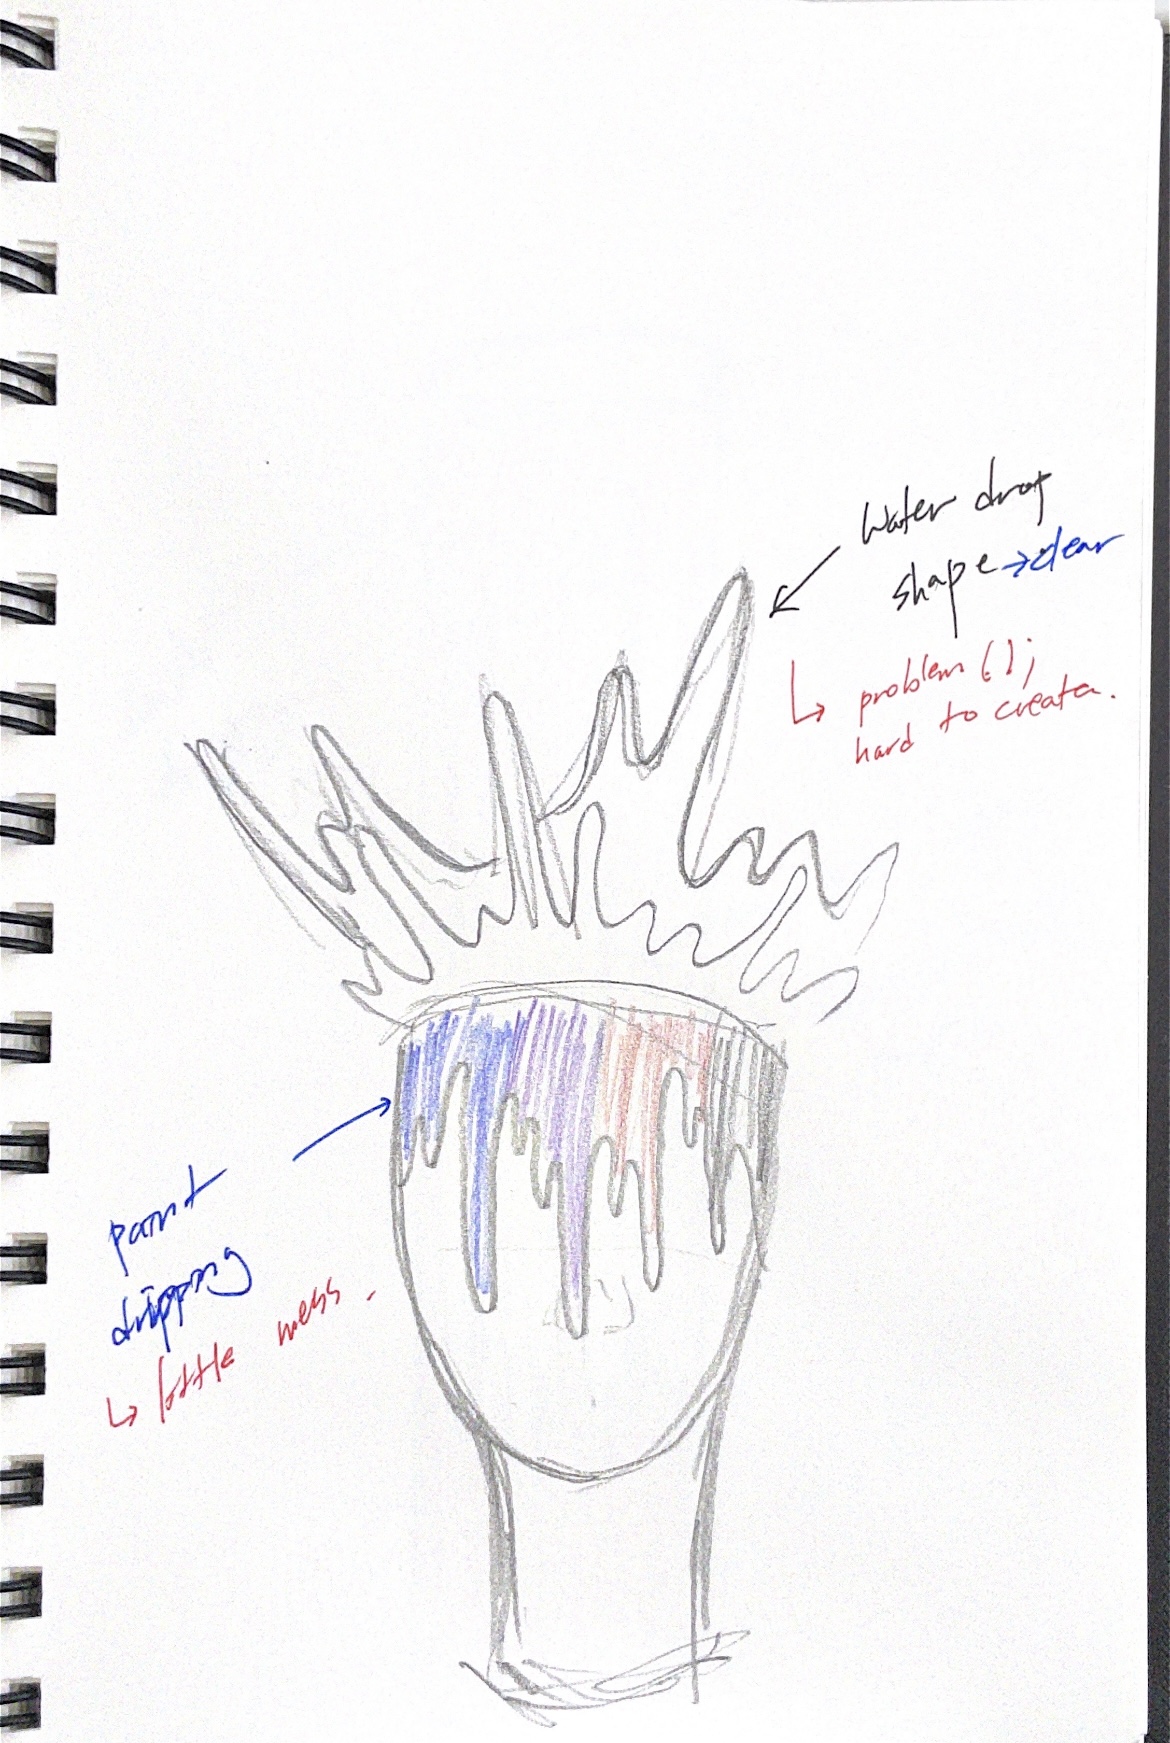 Water drop
shape → clear
↳ problem (!);
hard to create.
paint
dripping
↳ little mess.